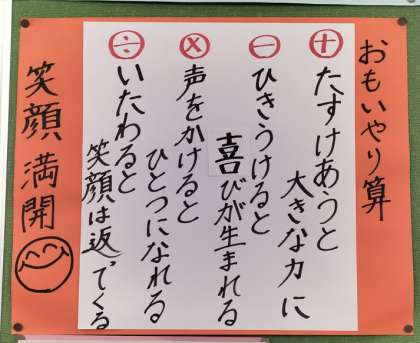 おもいやり算
＋
たすけあうと
大きな力に
－
ひきうけると
喜びが生まれる
×
声をかけると
ひとつになれる
÷
いたわると
笑顔は返ってくる
笑顔満開